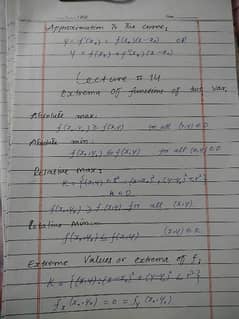 Approximation to the curve,
y = f(x₀) = f'(x₀)(x-x₀) OR
y = f(x₀) + f'(x₀)(x-x₀)
Lecture # 14
Extrema of functions of two var.
Absolute max:
f(x₀,y₀) ≥ f(x,y) for all (x,y) ∈ D
Absolute min:
f(x₀,y₀) ≤ f(x,y) for all (x,y) ∈ D
Relative max:
K ⊂ D
f(x₀,y₀) ≥ f(x,y) for all (x,y)
Relative min:
f(x₀,y₀) ≤ f(x,y) (x,y) ∈ D
Extreme Values or extrema of f,
fₓ(x₀,y₀) = 0 = f_y(x₀,y₀)